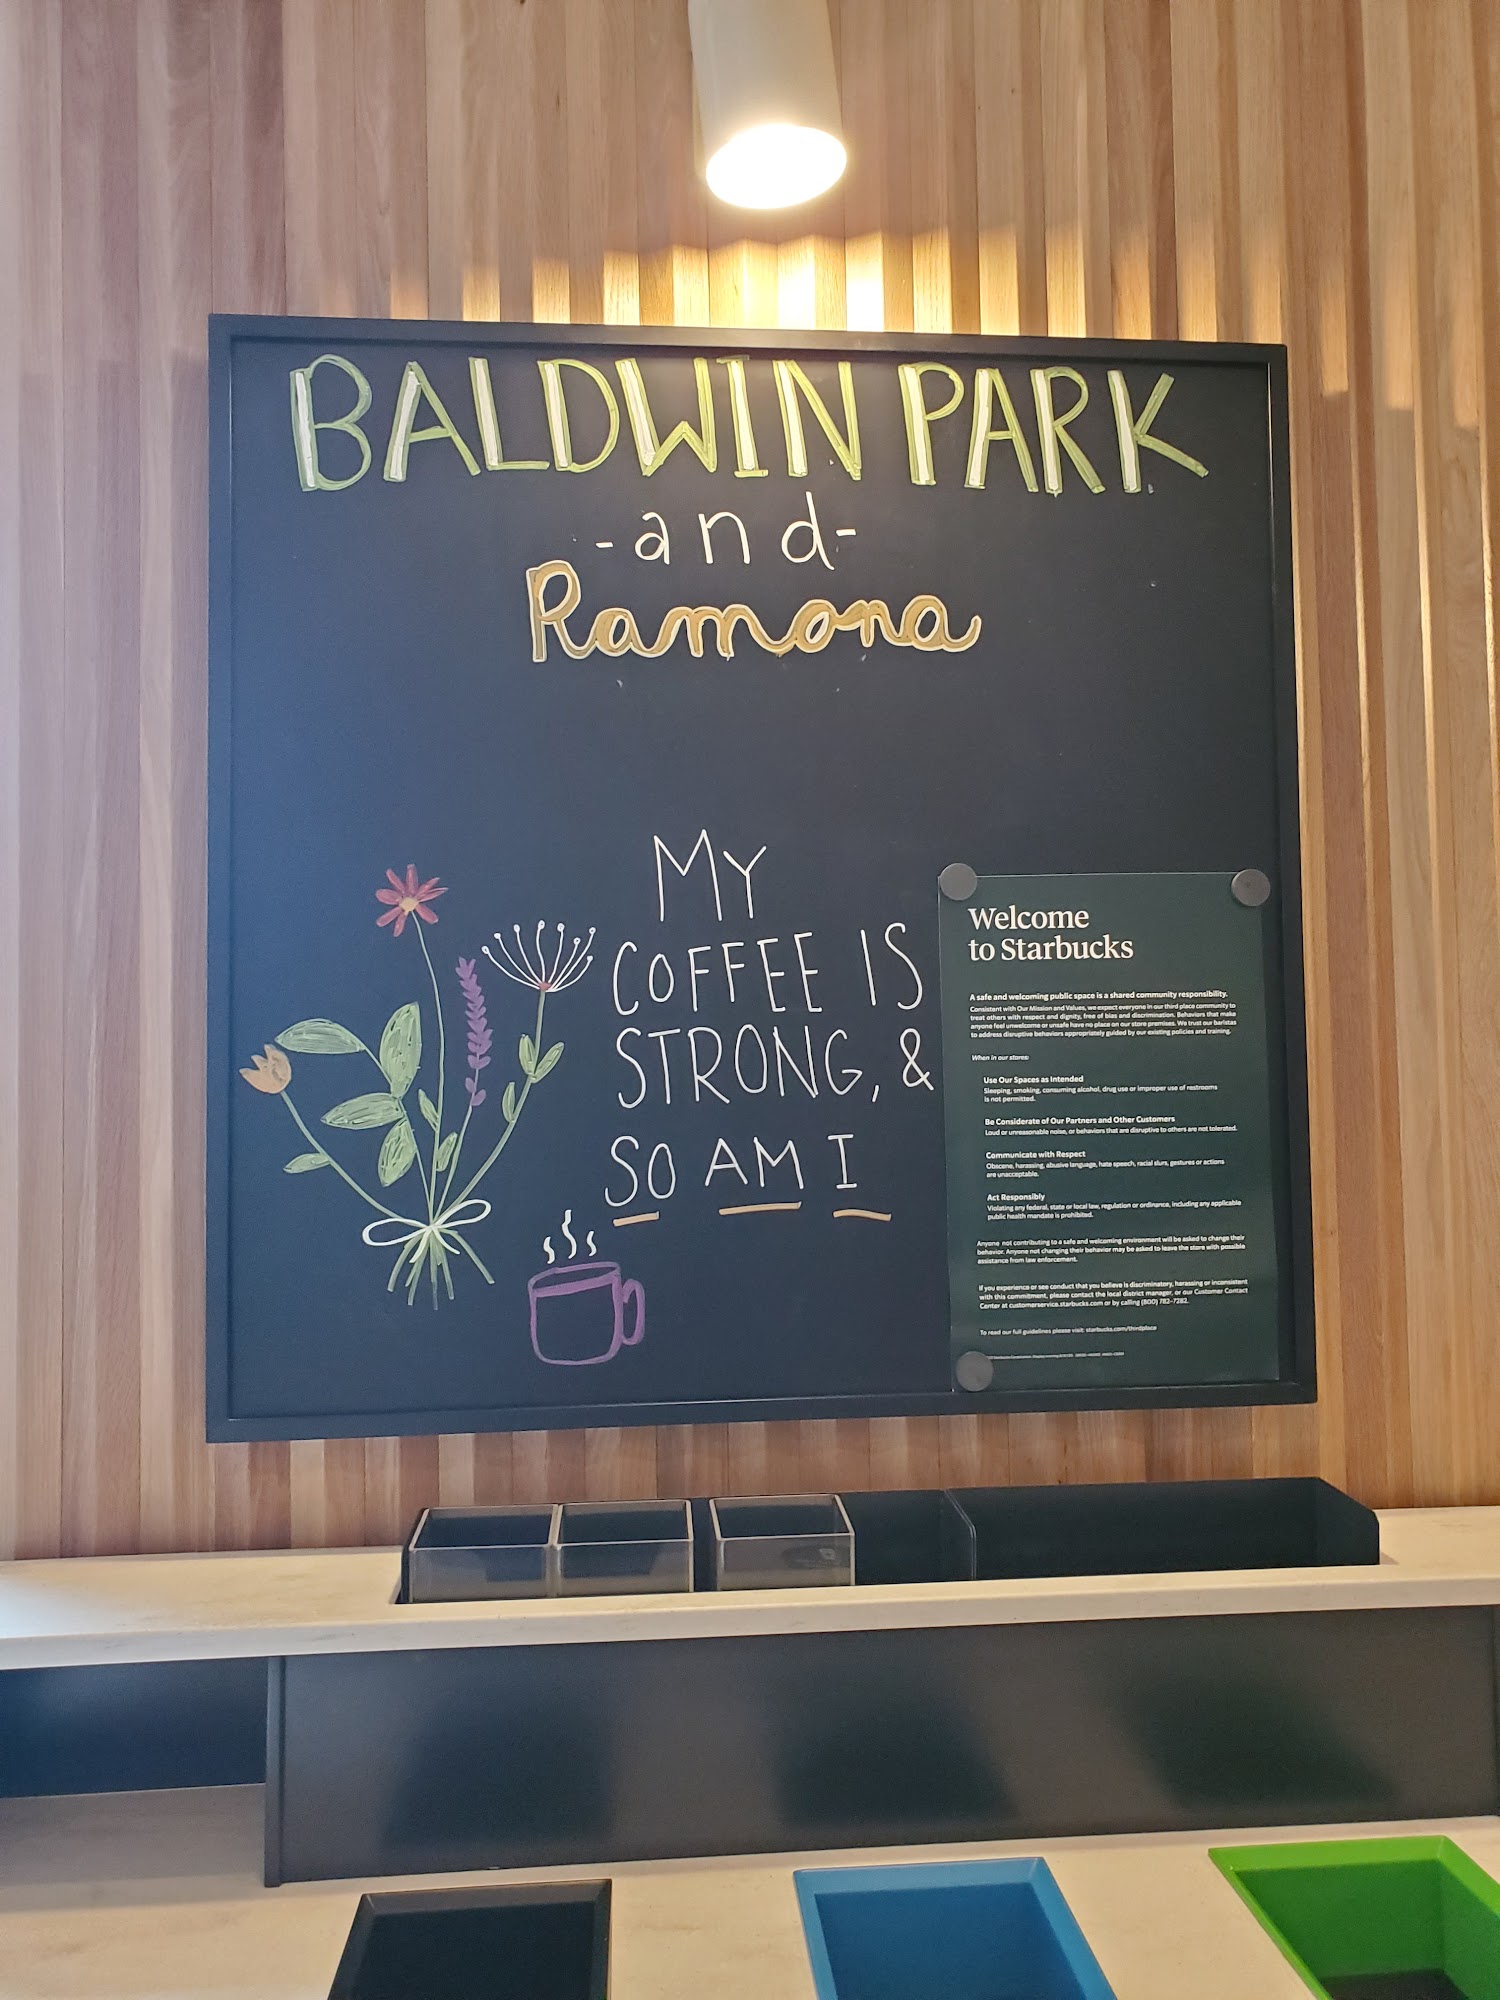 BALDWIN PARK
-and-
Ramona
MY
COFFEE IS
STRONG, &
SO AM I
Welcome
to Starbucks
A safe and welcoming public space is a shared community responsibility.
Consistent with Our Mission and Values, we expect everyone in our third place community to
treat others with respect and dignity, free of bias and discrimination. Behaviors that make
anyone feel unwelcome or unsafe have no place on our store premises. We trust our baristas
to address disruptive behaviors appropriately guided by our existing policies and training.
When in our stores:
Use Our Spaces as Intended
Sleeping, smoking, consuming alcohol, drug use or improper use of restrooms
is not permitted.
Be Considerate of Our Partners and Other Customers
Loud or unreasonable noise, or behaviors that are disruptive to others are not tolerated.
Communicate with Respect
Obscene, harassing, abusive language, hate speech, racial slurs, gestures or actions
are unacceptable.
Act Responsibly
Violating any federal, state or local law, regulation or ordinance, including any applicable
public health mandate is prohibited.
Anyone not contributing to a safe and welcoming environment will be asked to change their
behavior. Anyone not changing their behavior may be asked to leave the store with possible
assistance from law enforcement.
If you experience or see conduct that you believe is discriminatory, harassing or inconsistent
with this commitment, please contact the local district manager, or our Customer Contact
Center at customerservice.starbucks.com or by calling (800) 782-7282.
To read our full guidelines please visit: starbucks.com/thirdplace